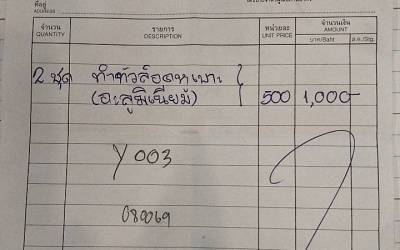 ที่อยู่
ADDRESS
จำนวน รายการ หน่วยละ จำนวนเงิน
QUANTITY DESCRIPTION UNIT PRICE AMOUNT
บาท/Baht ส.ต./Stg.
2 ชุด ทำหัวล็อคเหมาะ
(อะลูมิเนียม) 500 1,000-
Y 003
080069